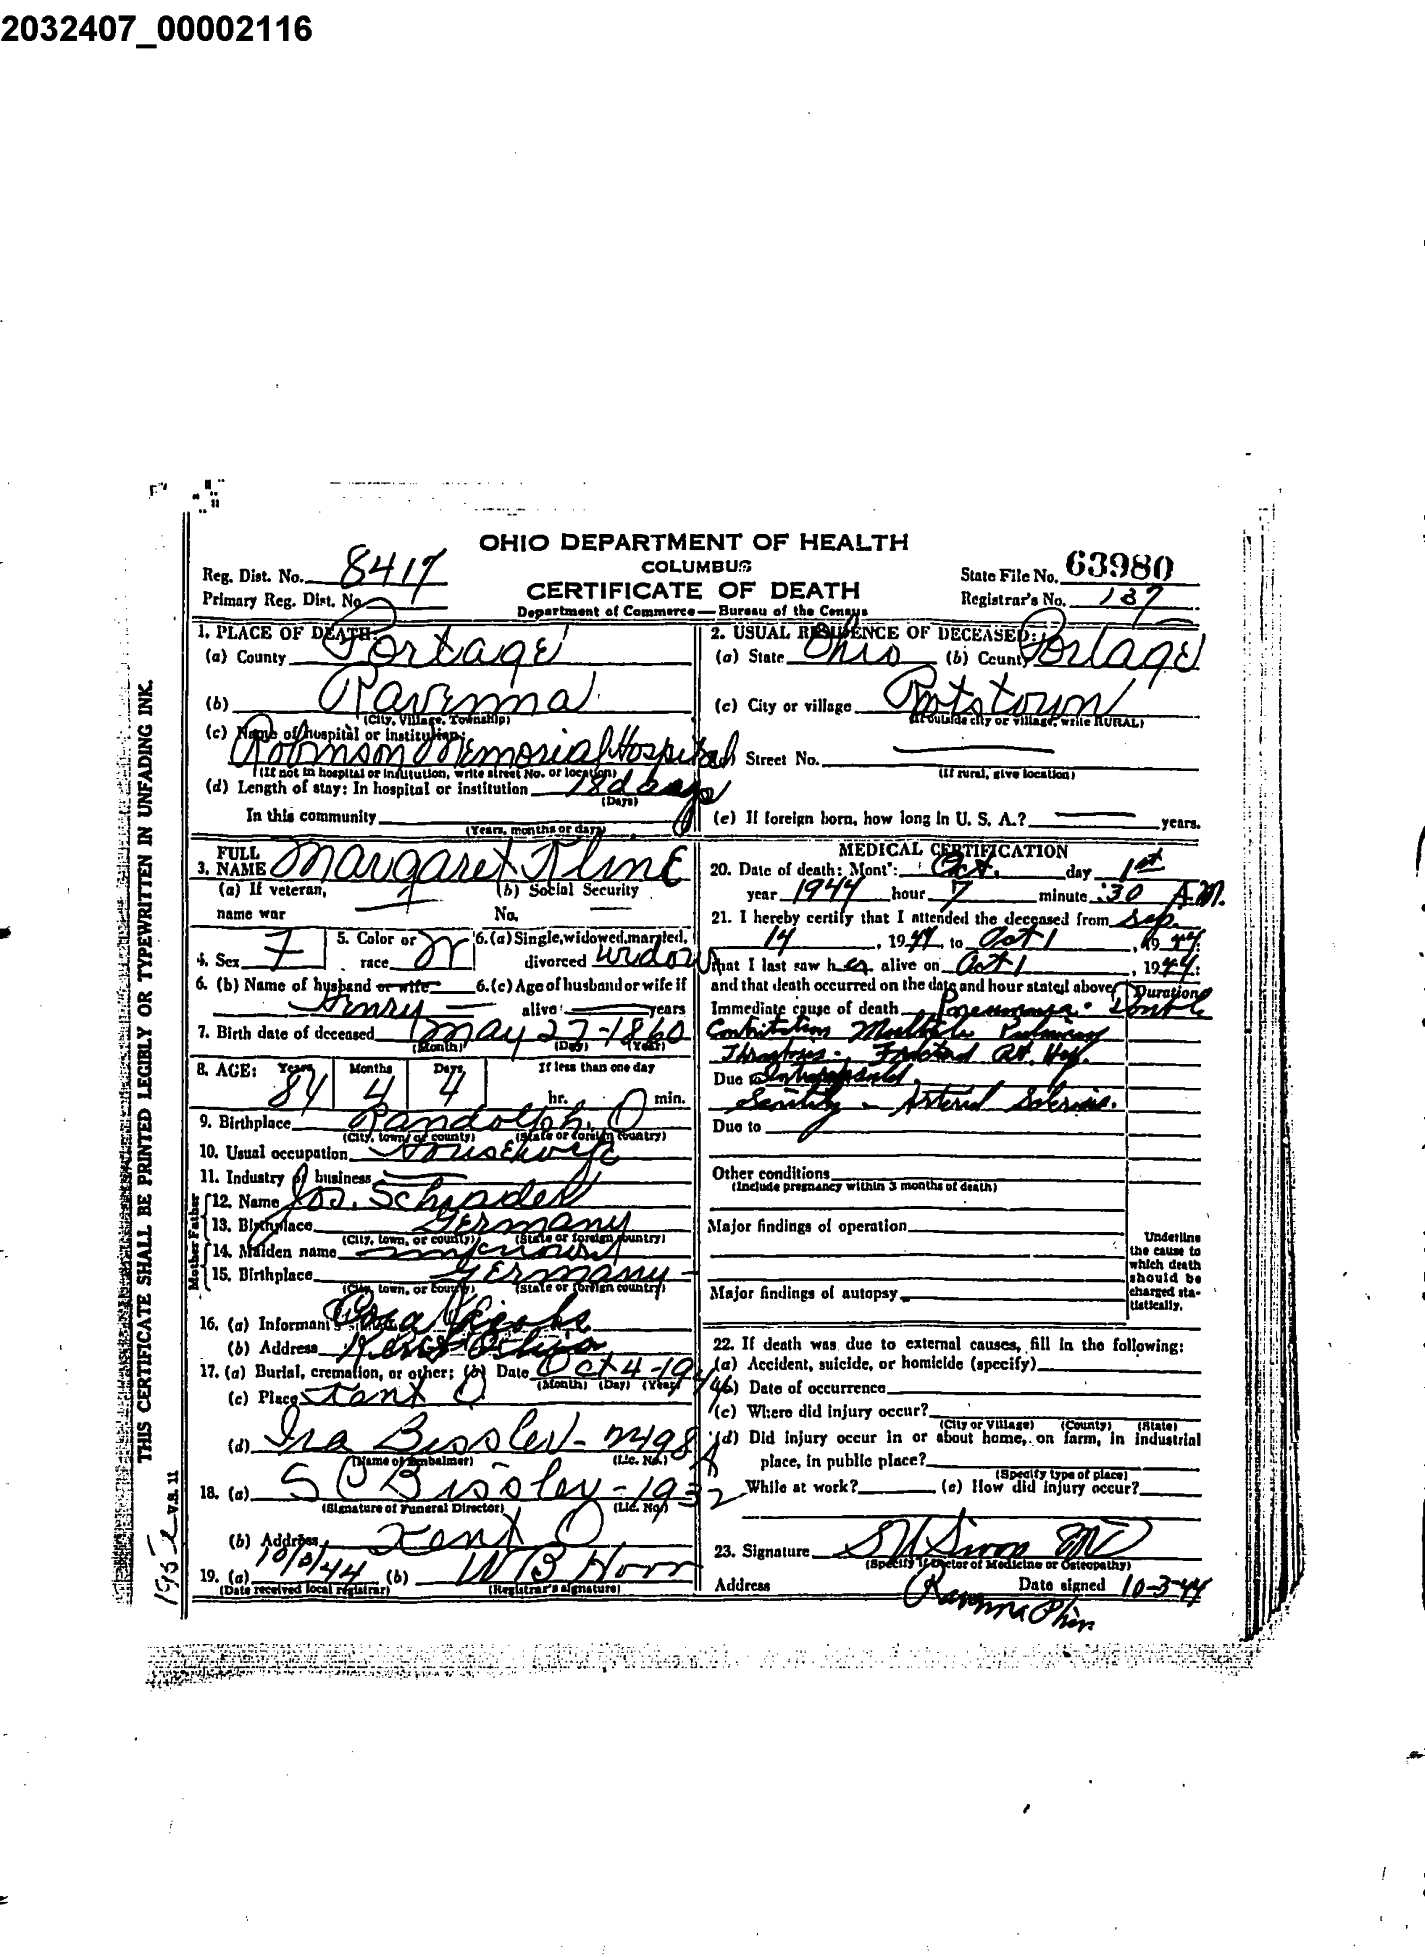 2032407_00002116
OHIO DEPARTMENT OF HEALTH
COLUMBUS
CERTIFICATE OF DEATH
Department of Commerce—Bureau of the Census
Reg. Dist. No. 8417
Primary Reg. Dist. No.
State File No. 63980
Registrar's No. 187
THIS CERTIFICATE SHALL BE PRINTED LEGIBLY OR TYPEWRITTEN IN UNFADING INK.
V.S. 11
1. PLACE OF DEATH:
(a) County Portage
(b) Ravenna
(City, Village, Township)
(c) Name of hospital or institution:
Robinson Memorial Hospital
(If not in hospital or institution, write street No. or location)
(d) Length of stay: In hospital or institution 18 days
(Days)
In this community
(Years, months or days)
2. USUAL RESIDENCE OF DECEASED:
(a) State Ohio (b) County Portage
(c) City or village
(If outside city or village, write RURAL)
Street No.
(If rural, give location)
(e) If foreign born, how long in U. S. A.? years.
3. FULL NAME Margaret Kline
(a) If veteran, name war
(b) Social Security No.
4. Sex F
5. Color or race W
6. (a) Single, widowed, married, divorced widow
6. (b) Name of husband or wife Henry
6. (c) Age of husband or wife if alive years
7. Birth date of deceased May 27-1860
(Month) (Day) (Year)
8. AGE: Years 84 Months 4 Days 4 If less than one day hr. min.
9. Birthplace Randolph. O
(City, town, or county) (State or foreign country)
10. Usual occupation Housewife
11. Industry or business
Father
12. Name Jos. Schrader
13. Birthplace Germany
(City, town, or county) (State or foreign country)
Mother
14. Maiden name unknown
15. Birthplace Germany
(City, town, or county) (State or foreign country)
16. (a) Informant's
(b) Address Kent Ohio
17. (a) Burial, cremation, or other; (b) Date Oct 4-1944
(Month) (Day) (Year)
(c) Place Kent O
(d) Ira Bissler - 2498 A
(Name of Embalmer) (Lic. No.)
18. (a) S C Bissler - 1932
(Signature of Funeral Director) (Lic. No.)
(b) Address Kent O
19. (a) 10/3/44 (b) W B Horn
(Date received local registrar) (Registrar's signature)
MEDICAL CERTIFICATION
20. Date of death: Month Oct. day 1st
year 1944 hour 7 minute :30 A.M.
21. I hereby certify that I attended the deceased from Sep.
14, 1944, to Oct 1, 1944;
that I last saw her alive on Oct 1, 1944;
and that death occurred on the date and hour stated above.
Duration
Immediate cause of death Pneumonia. Double
Multiple Pulmonary
Due to
Senility - Arterial Sclerosis.
Due to
Other conditions
(Include pregnancy within 3 months of death)
Major findings of operation
Major findings of autopsy
Underline the cause to which death should be charged statistically.
22. If death was due to external causes, fill in the following:
(a) Accident, suicide, or homicide (specify)
(b) Date of occurrence
(c) Where did injury occur?
(City or Village) (County) (State)
(d) Did injury occur in or about home, on farm, in industrial
place, in public place?
(Specify type of place)
While at work? (e) How did injury occur?
23. Signature
(Specify if Doctor of Medicine or Osteopathy)
Address Ravenna Ohio Date signed 10-3-44